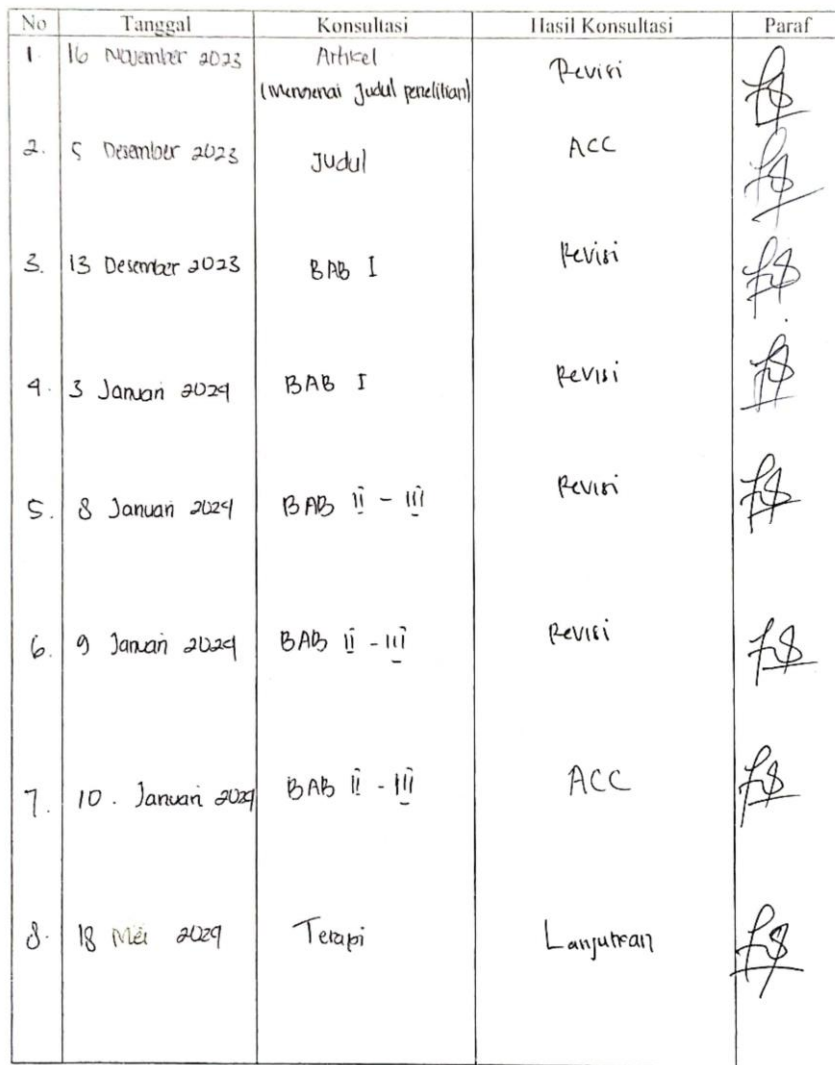 No Tanggal Konsultasi Hasil Konsultasi Paraf
1. 16 November 2023 Artikel Revisi
(Mengenai Judul penelitian)
2. 5 Desember 2023 Judul ACC
3. 13 Desember 2023 BAB I Revisi
4. 3 Januari 2024 BAB I Revisi
5. 8 Januari 2024 BAB II - III Revisi
6. 9 Januari 2024 BAB II - III Revisi
7. 10. Januari 2024 BAB II - III ACC
8. 18 Mei 2024 Terapi Lanjutkan